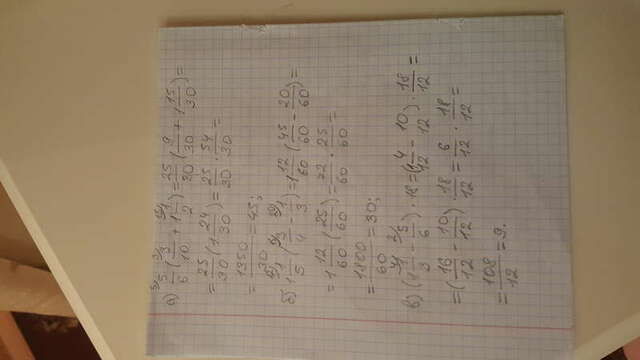 а) 5/6 (3/10 + 1 1/2) = 25/30 (9/30 + 1 15/30) =
= 25/30 (1 24/30) = 25/30 · 54/30 =
= 1350/30 = 45;
б) 1 1/5 (3/4 - 1/3) = 1 12/60 (45/60 - 20/60) =
= 1 12/60 (25/60) = 72/60 · 25/60 =
= 1800/60 = 30;
в) (1 1/3 - 5/6) · 18 = (1 4/12 - 10/12) · 18/12 =
= (16/12 - 10/12) · 18/12 = 6/12 · 18/12 =
= 108/12 = 9.